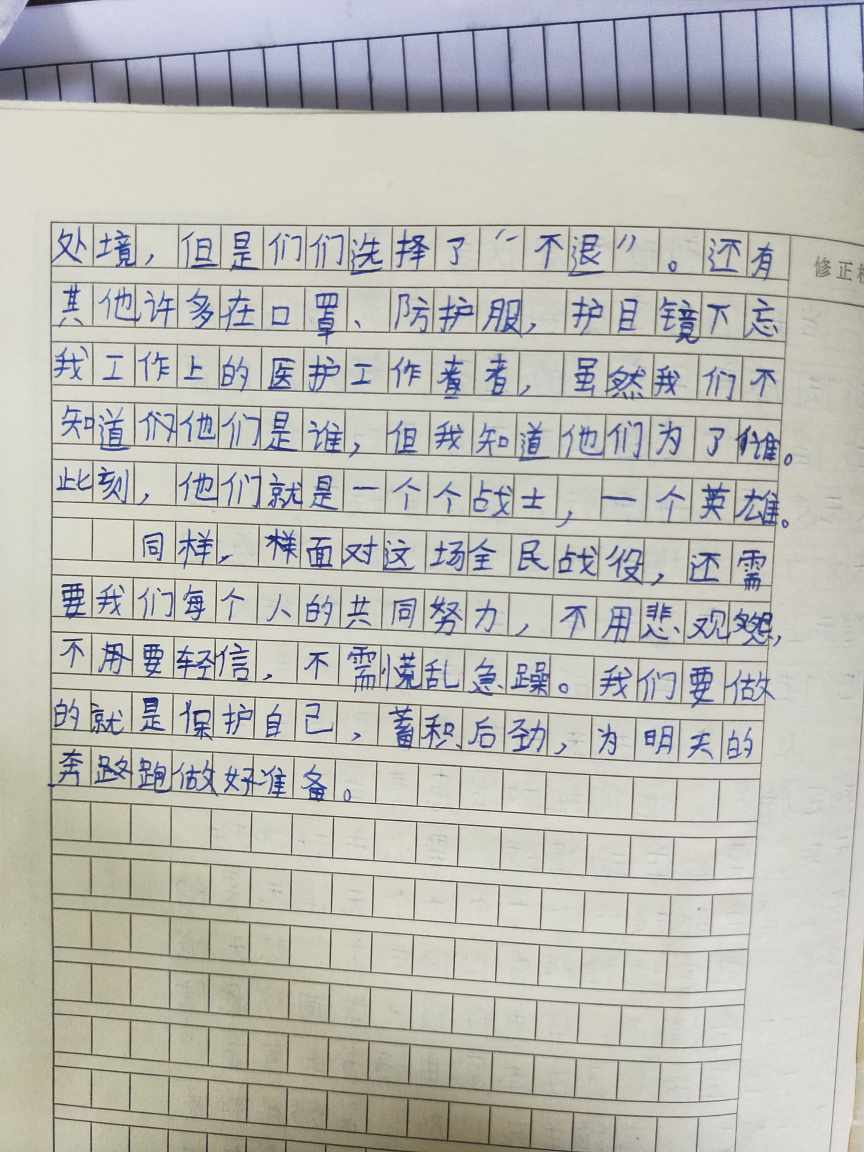 处境，但是们们选择了“不退”。还有
其他许多在口罩、防护服，护目镜下忘
我工作上的医护工作者者，虽然我们不
知道们他们是谁，但我知道他们为了谁。
此刻，他们就是一个个战士，一个英雄。
同样，样面对这场全民战役，还需
要我们每个人的共同努力，不用悲观怨，
不用要轻信，不需慌乱急躁。我们要做
的就是保护自己，蓄积后劲，为明天的
奔路跑做好准备。
修正